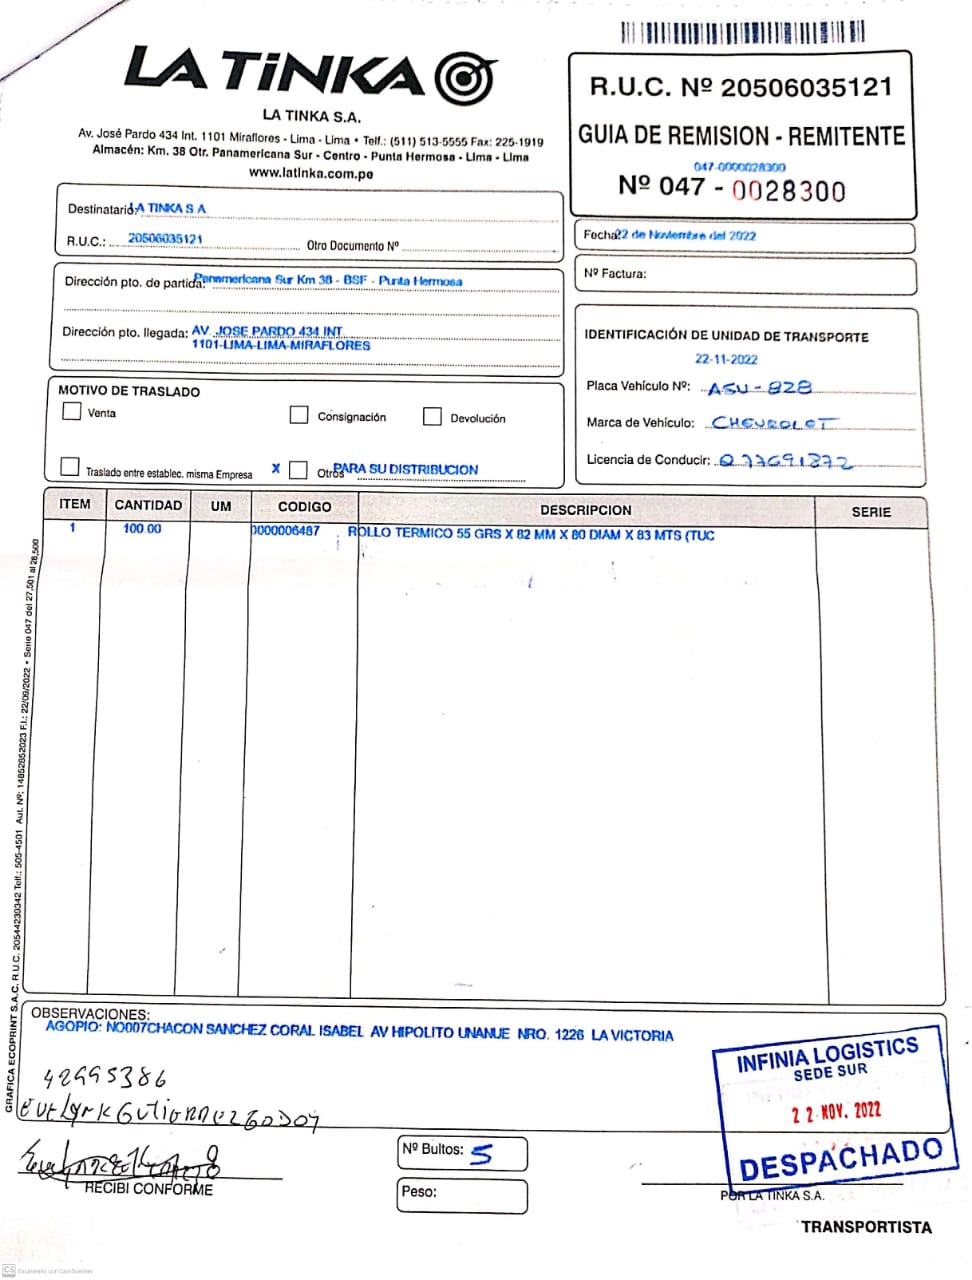 LA TiNKA
LA TINKA S.A.
Av. José Pardo 434 Int. 1101 Miraflores - Lima - Lima • Telf.: (511) 513-5555 Fax: 225-1919
Almacén: Km. 38 Otr. Panamericana Sur - Centro - Punta Hermosa - Lima - Lima
www.latinka.com.pe
R.U.C. Nº 20506035121
GUIA DE REMISION - REMITENTE
047-0000028300
Nº 047 - 0028300
Destinatario: LA TINKA S A
R.U.C.: 20506035121 Otro Documento Nº
Fecha: 22 de Noviembre del 2022
Nº Factura:
Dirección pto. de partida: Panamericana Sur Km 38 - BSF - Punta Hermosa
Dirección pto. llegada: AV. JOSE PARDO 434 INT.
1101-LIMA-LIMA-MIRAFLORES
IDENTIFICACIÓN DE UNIDAD DE TRANSPORTE
22-11-2022
Placa Vehículo Nº: ASU-828
Marca de Vehículo: CHEVROLET
Licencia de Conducir: Q77691872
MOTIVO DE TRASLADO
Venta Consignación Devolución
Traslado entre establec. misma Empresa X Otros PARA SU DISTRIBUCION
ITEM CANTIDAD UM CODIGO DESCRIPCION SERIE
1 100.00 0000006487 ROLLO TERMICO 55 GRS X 82 MM X 80 DIAM X 83 MTS (TUC
GRAFICA ECOPRINT S.A.C. R.U.C. 20544230342 Telf.: 505-4501 Aut. Nº: 14852852023 F.I.: 22/09/2022 • Serie 047 del 27,501 al 28,500
OBSERVACIONES:
AGOPIO: NO007CHACON SANCHEZ CORAL ISABEL AV HIPOLITO UNANUE NRO. 1226 LA VICTORIA
42495386
Evelyn K Gutierrez Godoy
RECIBI CONFORME
Nº Bultos: 5
Peso:
INFINIA LOGISTICS
SEDE SUR
22 NOV. 2022
DESPACHADO
POR LA TINKA S.A.
TRANSPORTISTA
CS Escaneado con CamScanner